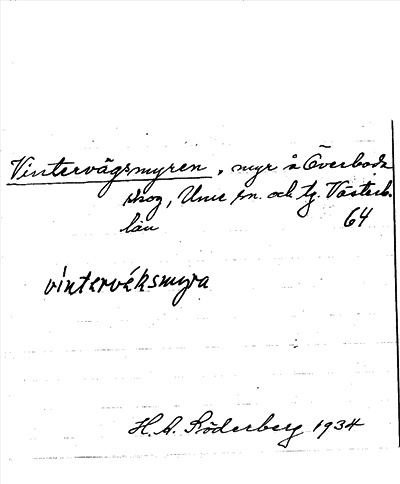 Vintervägsmyren, myr å Överboda
skog, Ume sn. och tg. Västerb.
län 64
vintervéksmyra
H. A. Söderberg 1934